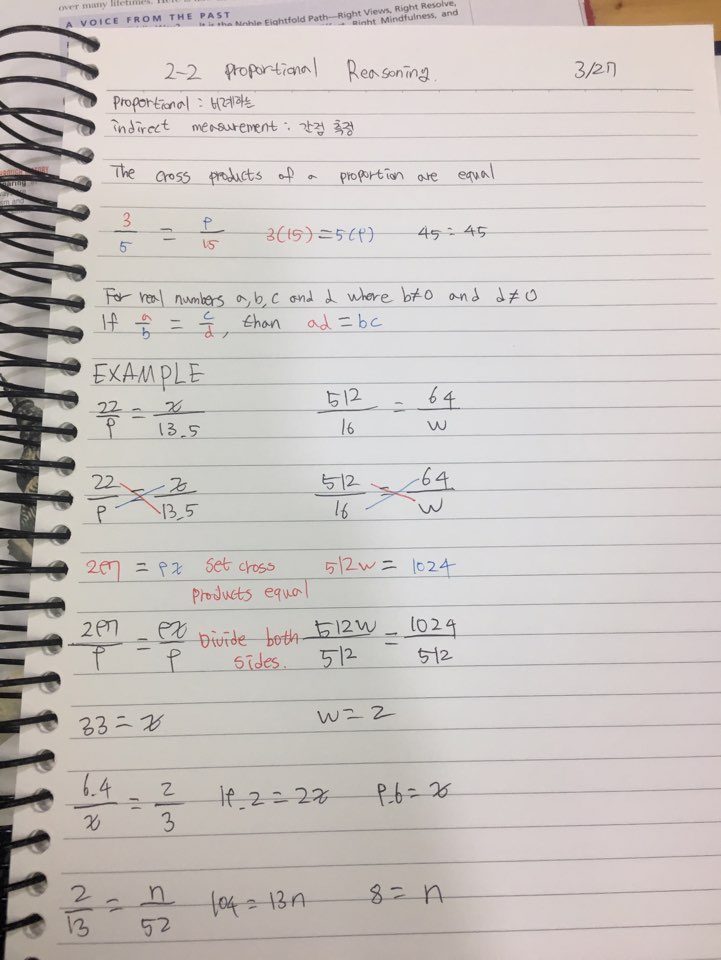 over many lifetimes.
A VOICE FROM THE PAST
It is the Noble Eightfold Path—Right Views, Right Resolve,
Right Mindfulness, and
2-2 Proportional Reasoning. 3/27
Proportional : 비례하는
indirect measurement : 간접 측정
The cross products of a proportion are equal
3/5 = 9/15 3(15)=5(9) 45=45
For real numbers a, b, c and d where b≠0 and d≠0
If a/b = c/d, than ad = bc
EXAMPLE
22/9 = x/13.5 512/16 = 64/w
22/9 = x/13.5 512/16 = 64/w
297 = 9x Set cross products equal 512w = 1024
297/9 = 9x/9 Divide both sides. 512w/512 = 1024/512
33 = x w = 2
6.4/x = 2/3 19.2 = 2x 9.6 = x
2/13 = n/52 104 = 13n 8 = n